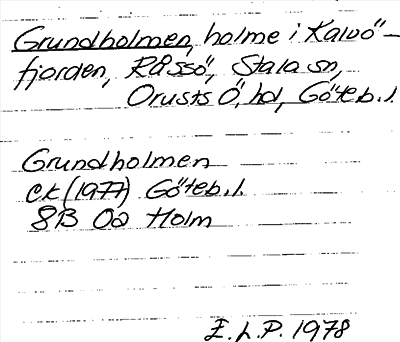 Grundholmen, holme i Kalvö-
fjorden, Råssö, Stala sn,
Orusts Ö, hd, Göteb. l.
Grundholmen
ek (1977) Göteb. l.
8B 0a Holm
E.L.P. 1978